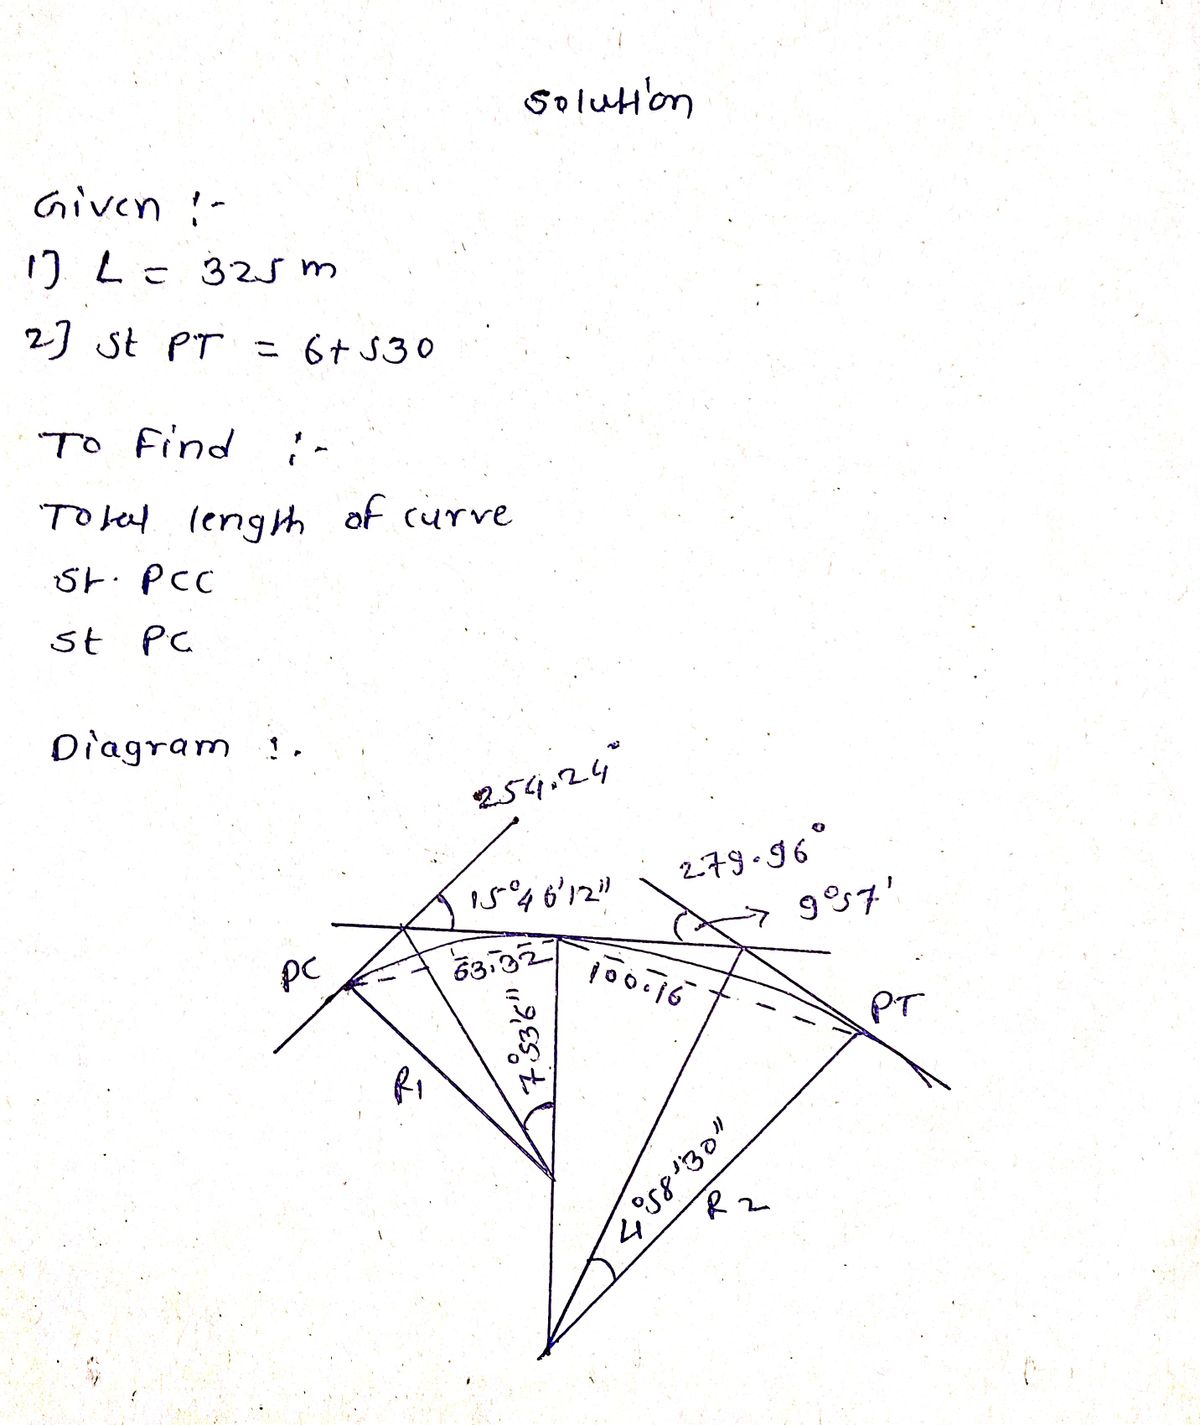 Solution
Given :-
1] L = 325 m
2] St PT = 6+530
To Find :-
Total length of curve
St. PCC
St PC
Diagram :.
254.24°
279.96°
15°46'12"
9°57'
PC
63.32
100.16
PT
7°53'6"
R1
4°58'30"
R2